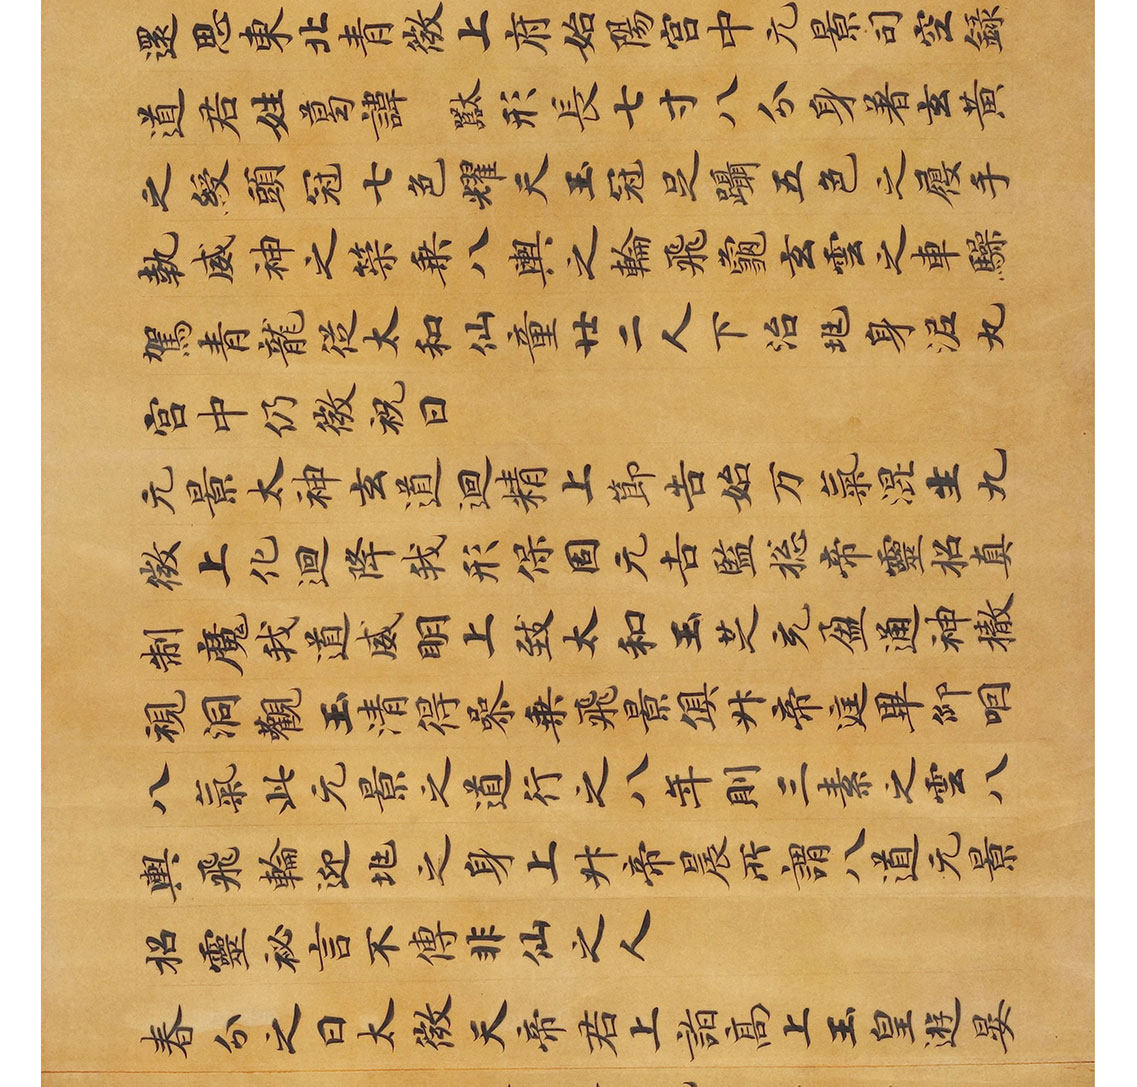 還思東北青微上府始陽宮中元景司空錄
道君姓葛諱 形長七寸八分身著玄黃
之綬頭冠七色耀天玉冠足躡五色之履手
執威神之策乗八輿之輪飛龜玄雲之車驂
駕青龍従太和仙童廿二人下治兆身泥丸
宮中仍微祝曰
元景太神玄道迴精上節告始万氣混生九
微上化迴降我形保固元吉監捴帝靈招真
制魔我道威明上致太和玉芝充盈通神徹
視洞觀玉清得乗飛景俱升帝庭畢仰咽
八氣此元景之道行之八年則三素之雲八
輿飛輪迎兆之身上升帝晨所謂八道元景
招靈祕言不傳非仙之人
春分之日太微天帝君上詣高上玉皇遊宴